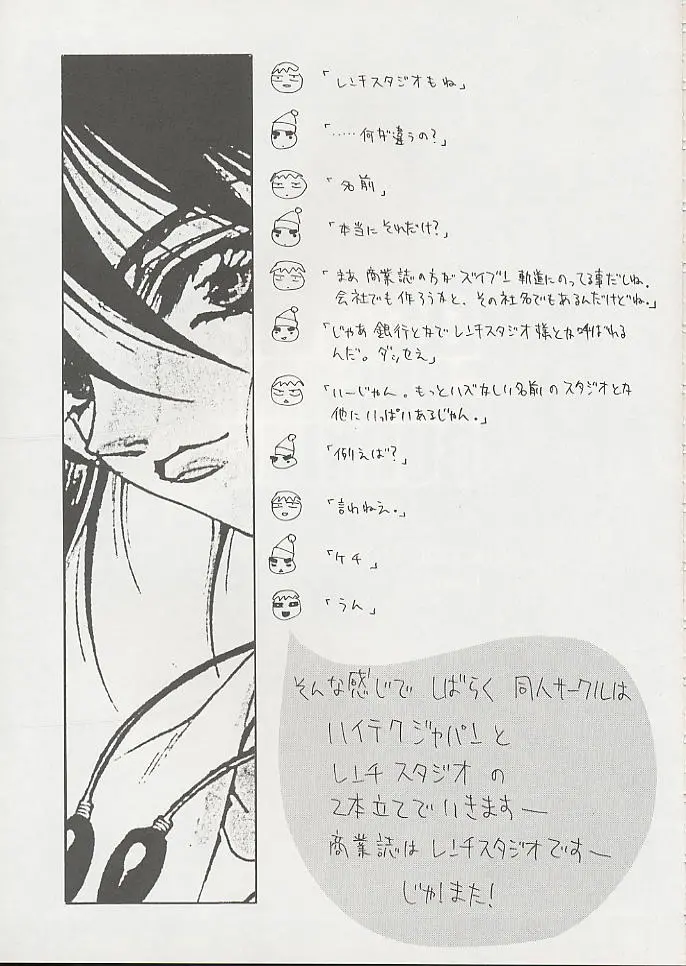 「レンチスタジオもね」
「……何が違うの?」
「名前」
「本当にそれだけ?」
「まあ 商業誌の方が ズイブン 軌道にのってる事だしね.
会社でも作ろうかと、その社名でもあるんだけどね。」
「じゃあ 銀行とかで レンチスタジオ様とか呼ばれる
んだ。ダッセえ」
「いーじゃん。もっとハズかしい名前のスタジオとか
他に いっぱいあるじゃん.」
「例えば?」
「言わねえ.」
「ケチ」
「うん」
そんな感じで しばらく 同人サークルは
ハイテクジャパンと
レンチ スタジオ の
2本立てでいきますー
商業誌は レンチスタジオですー
じゃ!また!